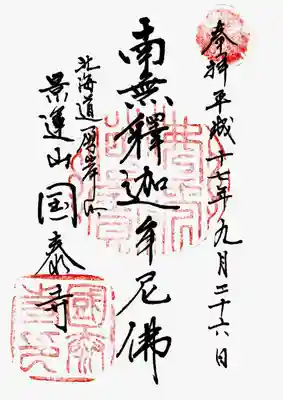 奉拝 平成十七年九月二十六日
南無釋迦牟尼佛
北海道厚岸町
景運山 国泰寺
國泰寺印